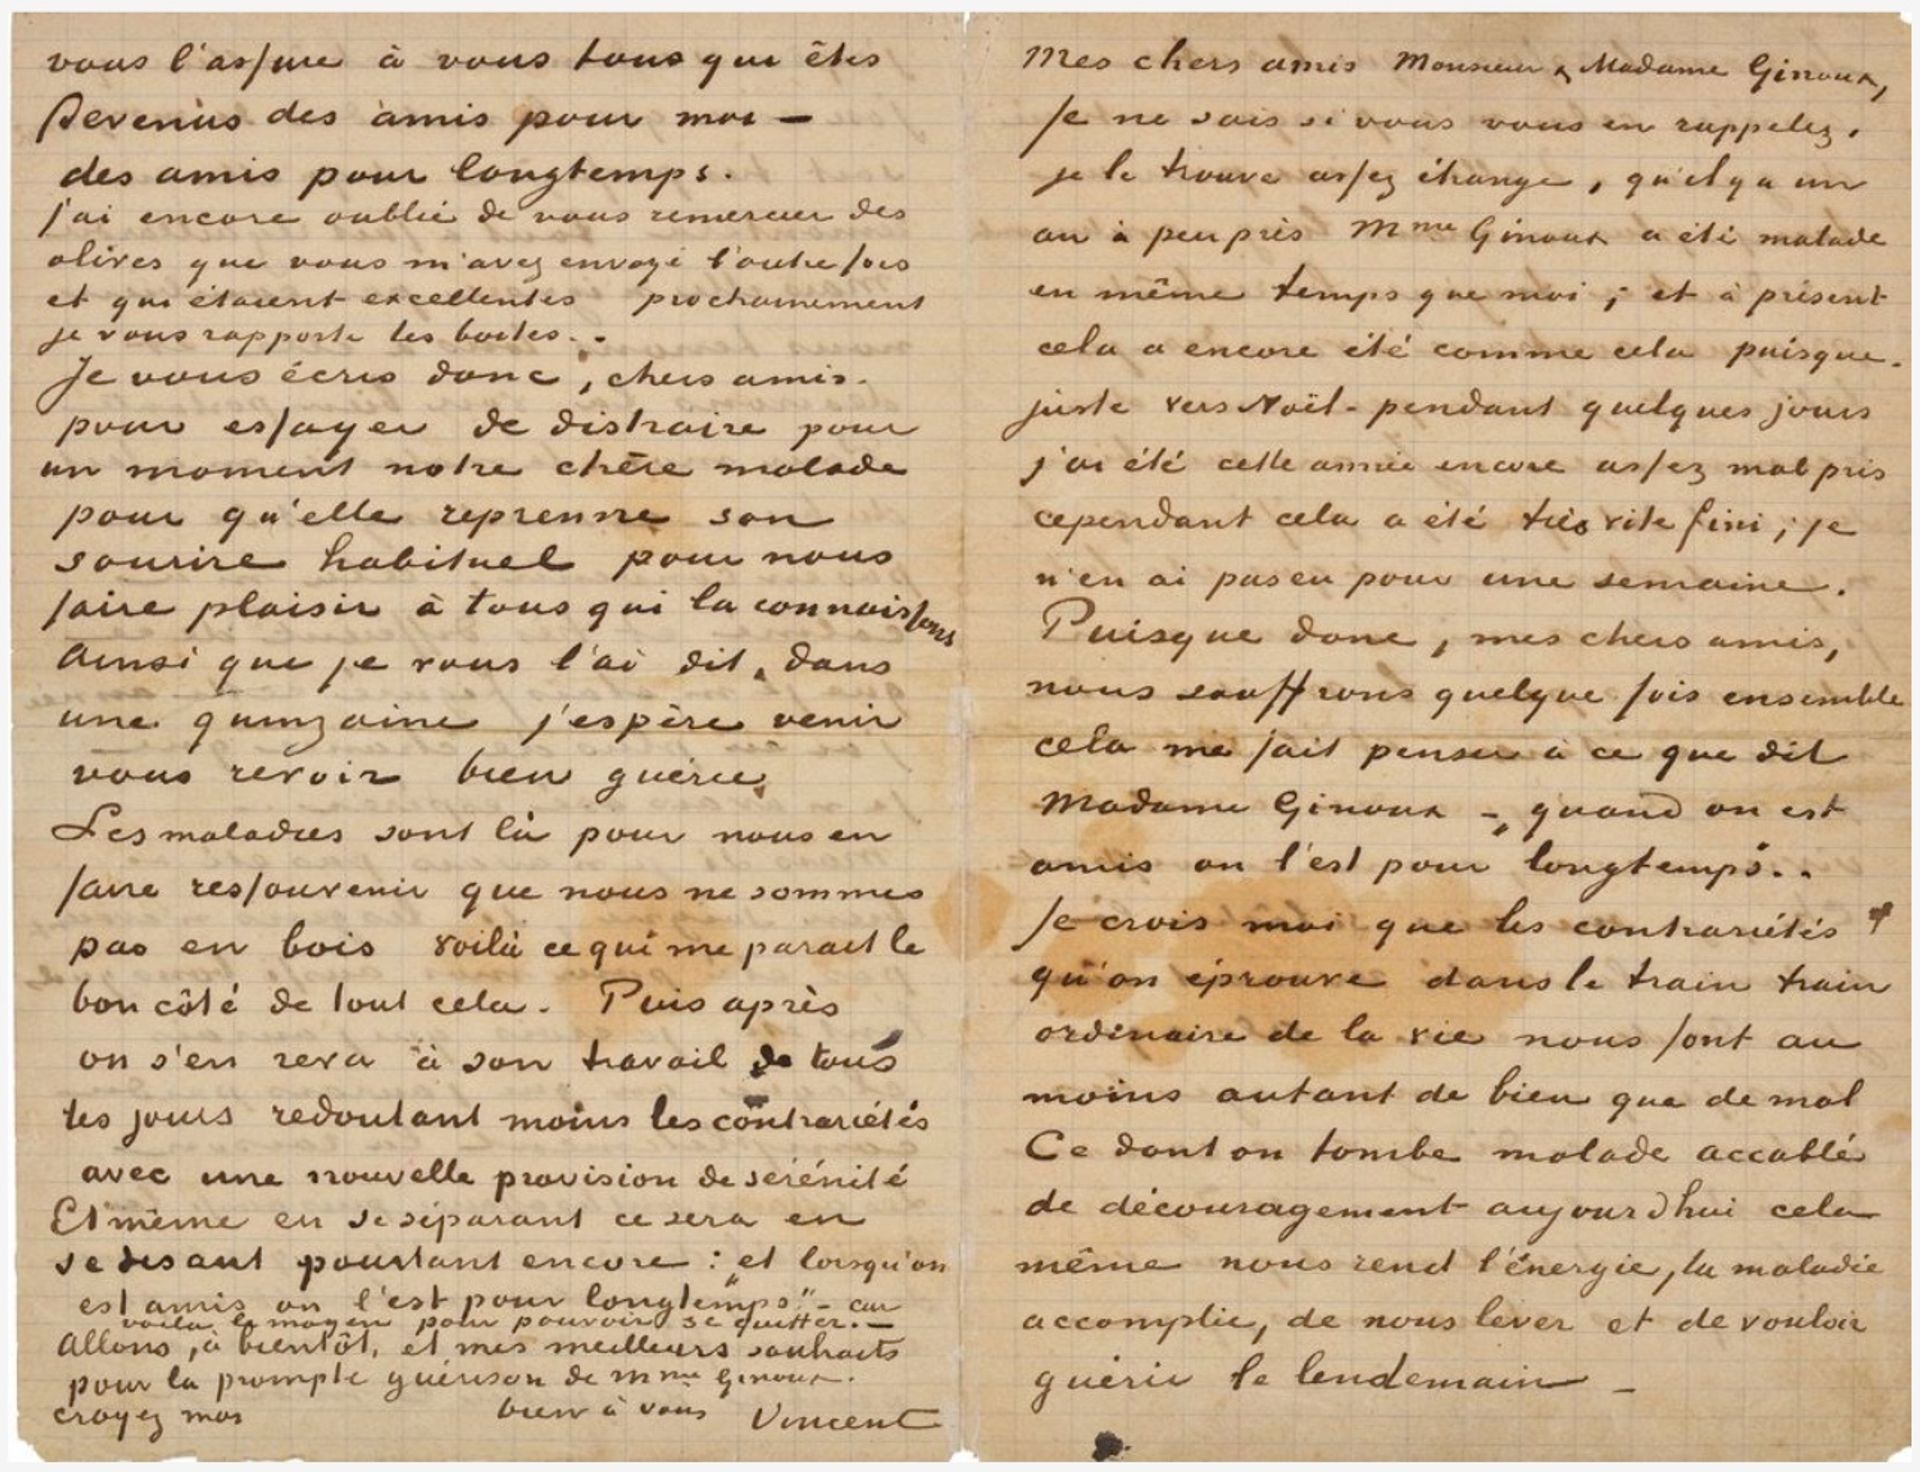 vous l'assure à vous tous qui êtes
devenus des amis pour moi —
des amis pour longtemps.
j'ai encore oublié de vous remercier des
olives que vous m'avez envoyé l'autre fois
et qui étaient excellentes prochainement
je vous rapporte les boites..
Je vous écris donc, chers amis.
pour essayer de distraire pour
un moment notre chère malade
pour qu'elle reprenne son
sourire habituel pour nous
faire plaisir à tous qui la connaissons
Ainsi que je vous l'ai dit, dans
une quinzaine j'espère venir
vous revoir bien guérie.
Les maladies sont là pour nous en
faire ressouvenir que nous ne sommes
pas en bois voilà ce qui me parait le
bon côté de tout cela. Puis après
on s'en reva à son travail de tous
les jours redoutant moins les contrariétés
avec une nouvelle provision de sérénité
Et même en se séparant ce sera en
se disant pourtant encore : "et lorsqu'on
est amis on l'est pour longtemps" – car
voila le moyen pour pouvoir se quitter. —
Allons, à bientôt, et mes meilleurs souhaits
pour la prompte guérison de Mme Ginoux.
croyez moi bien à vous Vincent
Mes chers amis Monsieur & Madame Ginoux,
Je ne sais si vous vous en rappelez,
je le trouve assez étrange, qu'il y a un
an à peu près Mme Ginoux a été malade
en même temps que moi ; et à présent
cela a encore été comme cela puisque.
juste vers Noël - pendant quelques jours
j'ai été cette année encore assez mal pris
cependant cela a été très vite fini ; je
n'en ai pas eu pour une semaine.
Puisque donc, mes chers amis,
nous souffrons quelque fois ensemble
cela me fait penser à ce que dit
Madame Ginoux –, quand on est
amis on l'est pour longtemps..
Je crois moi que les contrariétés
qu'on éprouve dans le train train
ordinaire de la vie nous font au
moins autant de bien que de mal
Ce dont on tombe malade accablé
de découragement aujourd'hui cela
même nous rend l'énergie, la maladie
accomplie, de nous lever et de vouloir
guérir le lendemain –